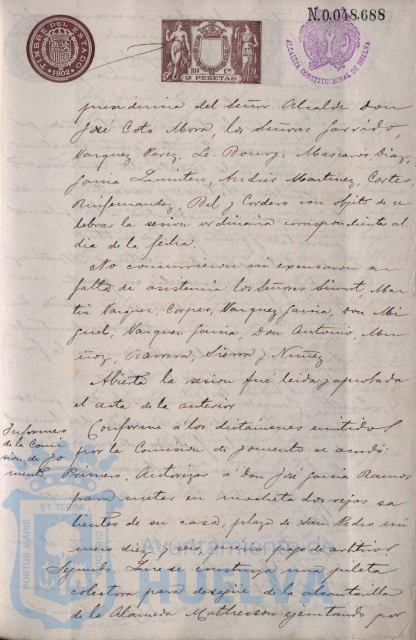 N. 0.048.688
TIMBRE DEL ESTADO
1902
2 PESETAS
ALCALDIA CONSTITUCIONAL DE HUELVA
presidencia del Señor Alcalde Don
José Coto Mora, los Señores Garrido,
Vazquez Perez, Le Bourg, Mascarós Diaz,
Garcia Andres Martinez, Cortes
Ruifernandez, Bel y Cordero con objeto de ce
lebrar la sesion ordinaria correspondiente al
dia de la fecha.
No concurrieron ni excusaron su
falta de asistencia los Señores Mar
tin Vazquez, Corpas, Vazquez Garcia, Don Mi
guel, Vazquez Garcia, Don Antonio, Mu
ñoz, Barrera, Sierra y Nuñez.
Abierta la sesion fué leida y aprobada
el acta de la anterior
Informes
de la Comi
sion de Fo
mento
Conforme á los dictámenes emitidos
por la Comision de Fomento se acordó:
Primero. Autorizar á Don José Garcia Ramos
para meter en mocheta dos rejas sa
lientes de su casa, plaza de San Pedro nú
mero diez y seis, previo pago de arbitrios
Segundo. Que se construya una pileta
colectora para desagüe de la alcantarilla
de la Alameda Matheson ejecutando por
PORTUS MARIS ET TERRAE
Ayuntamiento de
HUELVA